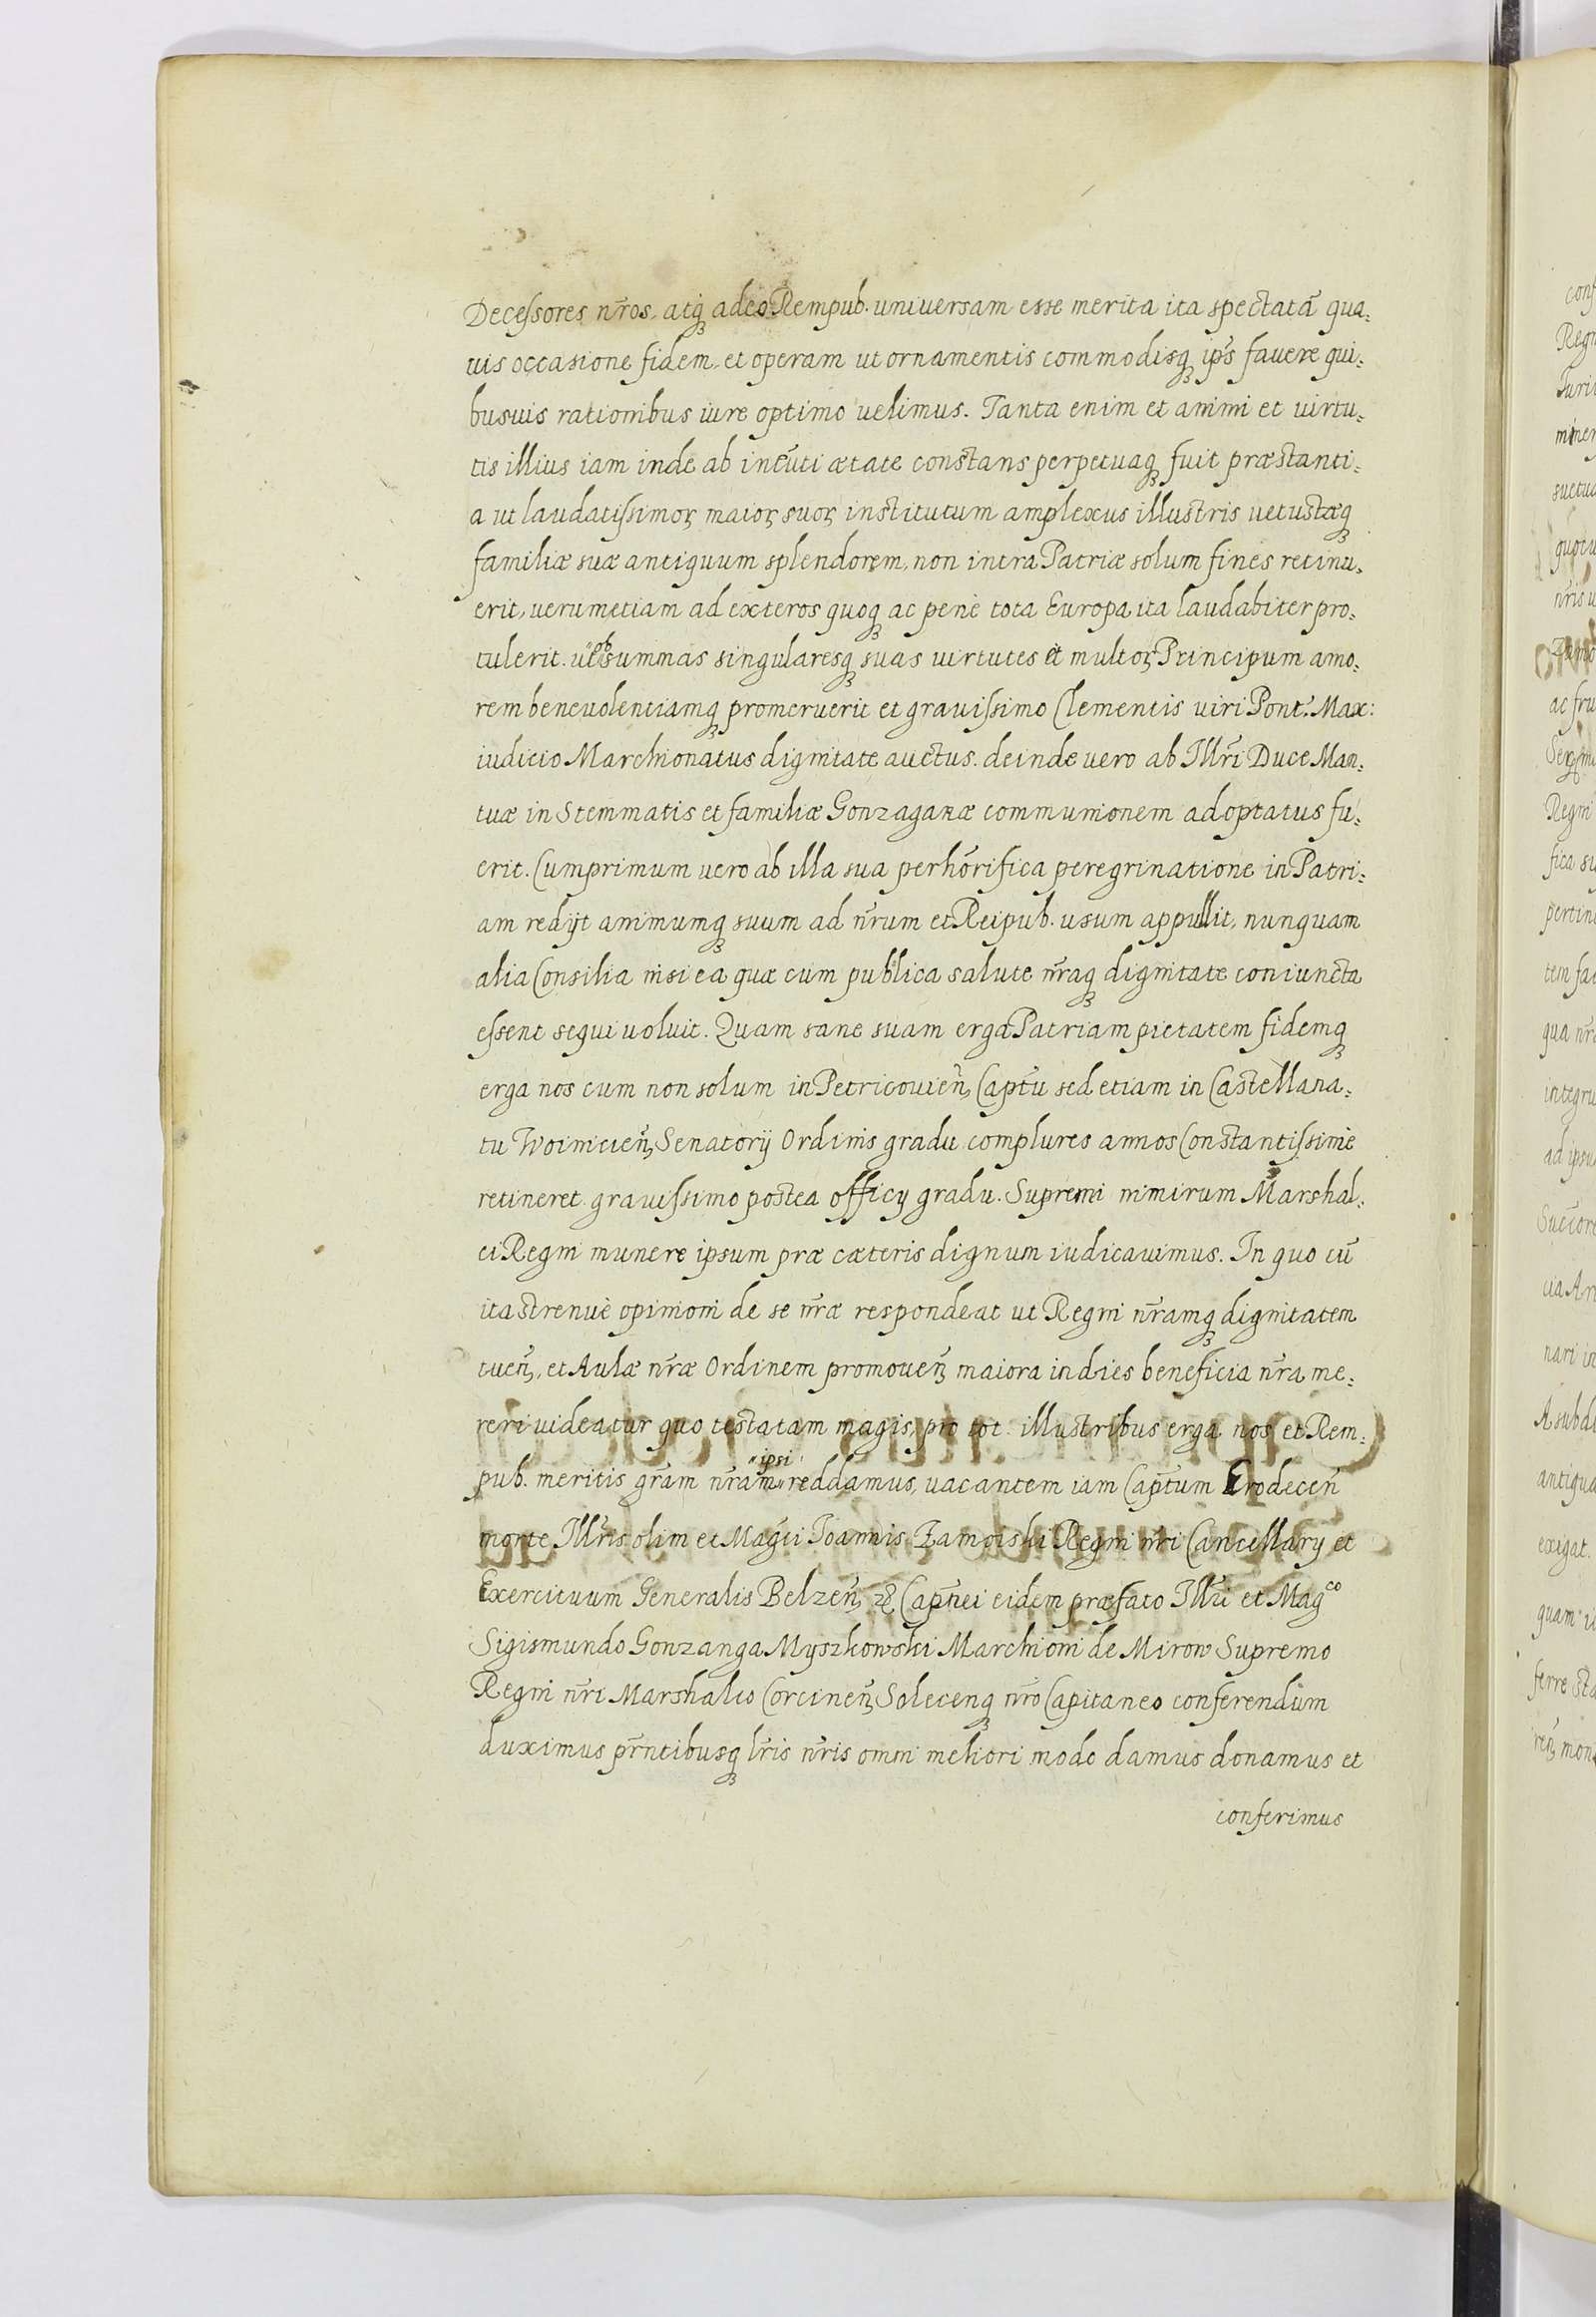 Decessores nr̃os, atq́ꝫ adeo Rempub. universam esse merita ita spectatã qua-
uis occasione fidem et operam ut ornamentis commodisqꝫ ip̃s fauere qui-
busuis rationibus iure optimo uelimus. Tanta enim et animi et uirtu-
tis illius iam inde ab ineũti ætate constans perpetuaqꝫ fuit præstanti-
a ut laudatissimoꝝ maioꝝ suoꝝ institutum amplexus illustris uetustæqꝫ
familiæ suæ antiquum splendorem, non intra Patriæ solum fines retinu-
erit, uerumetiam ad exteros quoqꝫ ac penè tota Europa ita laudabiter pro-
tulerit. ut ob summas singularesqꝫ suas uirtutes et multoꝝ Principum amo-
rem beneuolentiamqꝫ promeruerit et grauissimo Clementis uiri Pont. Max:
iudicio Marchionatus dignitate auctus. deinde uero ab Illr̃i Duce Man-
tuæ in Stemmatis et familiæ Gonzaganæ communionem adoptatus fu-
erit. Cumprimum uero ab illa sua perhõrifica peregrinatione in Patri-
am redijt animumqꝫ suum ad nr̃um et Reipub. usum appullit, nunquam
alia Consilia nisi ea quæ cum publica salute nr̃aqꝫ dignitate coniuncta
essent sequi uoluit. Quam sane suam erga Patriam pietatem fidemqꝫ
erga nos cum non solum in Petricouieñ, Capt̃u sed etiam in Castellana-
tu Woinicieñ, Senatorij Ordinis gradu complures annos Constantissimè
retineret grauissimo postea officij gradu. Supremi nimirum Marshal-
ci Regni munere ipsum præ cæteris dignum iudicauimus. In quo cũ
ita strenuè opinioni de se nr̃æ respondeat ut Regni nr̃amqꝫ dignitatem
tueñ, et Aulæ nr̃æ Ordinem promoueñ, maiora indies beneficia nr̃a me-
reri uideatur quo testatam magis, pro tot illustribus erga nos et Rem-
pub. meritis gr̃am nr̃am ipsi reddamus, uacantem iam Capt̃um Grodeceñ
morte Illr̃is olim et Mag̃ci Ioannis Zamoiski Regni nr̃i Cancellarij et
Exercituum Generalis Belzeñ, Capñei eidem præfato Illr̃i et Mag^co
Sigismundo Gonzanga Myszkowski Marchioni de Mirow Supremo
Regni nr̃i Marshalco Corcineñ, Solecenqꝫ nr̃o Capitaneo conferendum
duximus pr̃ntibusqꝫ lr̃is nr̃is omni meliori modo damus donamus et
conferimus